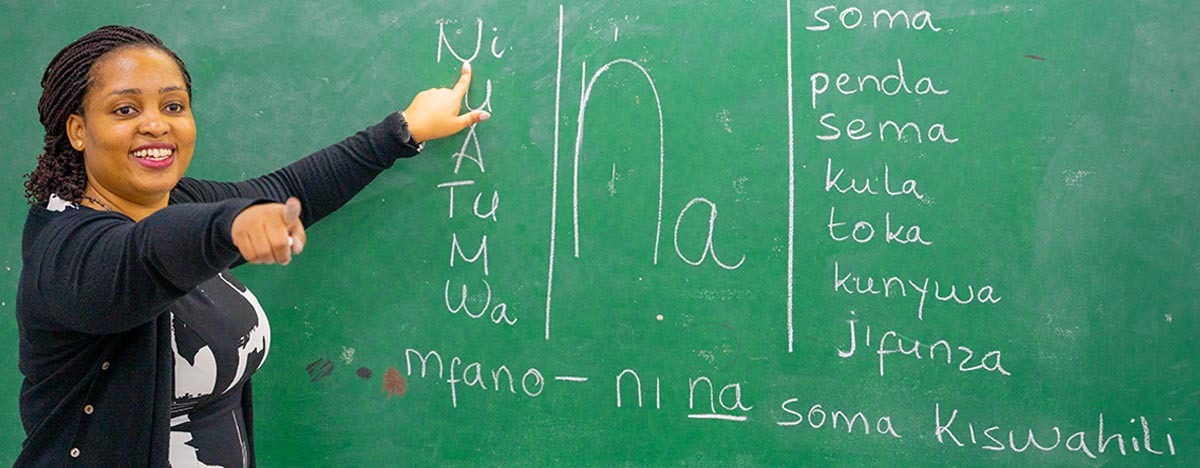 Ni
u
A
Tu
M
Wa
na
soma
penda
sema
kula
toka
kunywa
jifunza
mfano – ni na soma Kiswahili